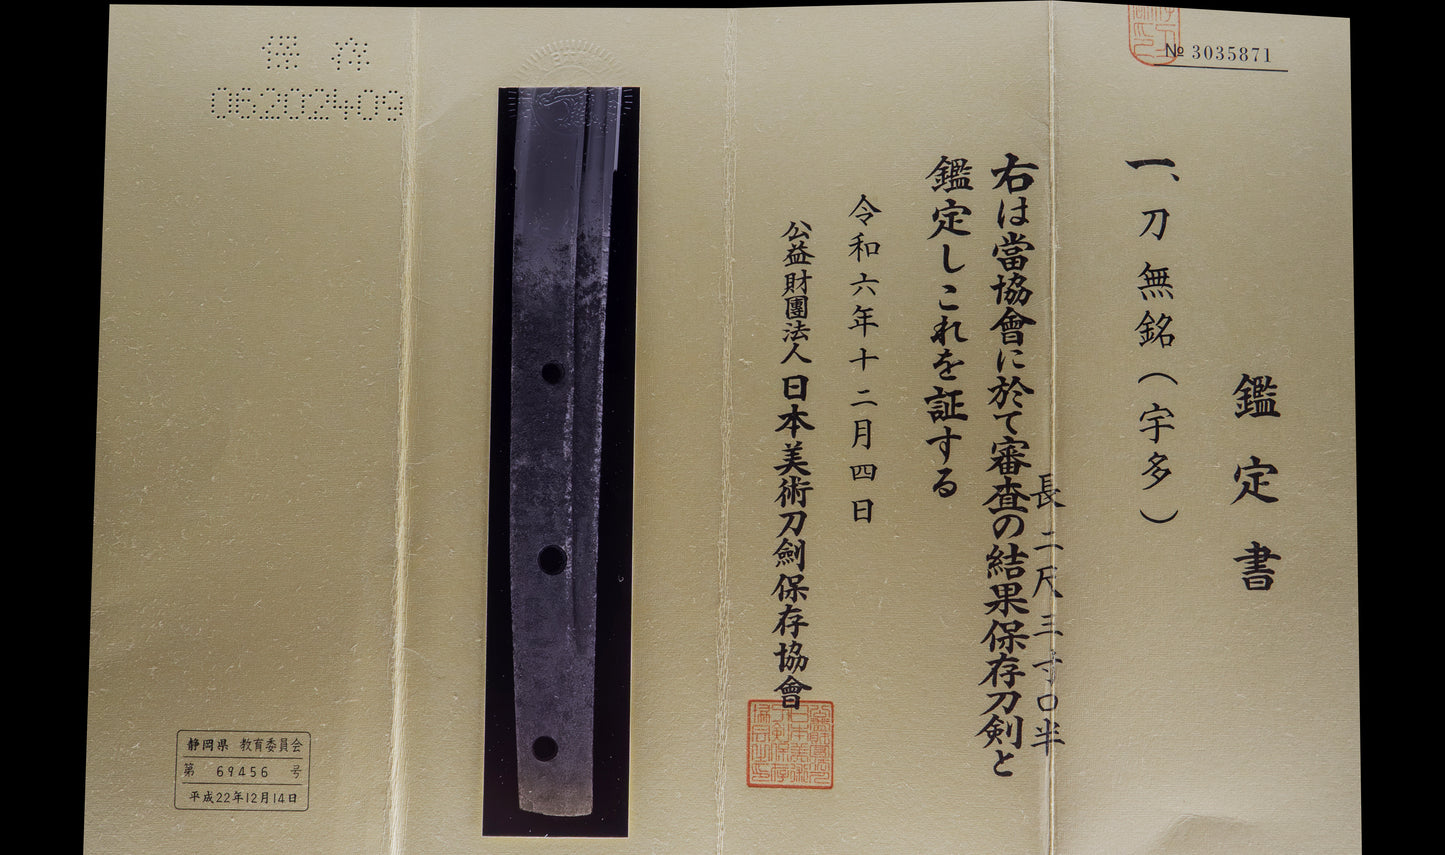 № 3035871
鑑定書
一、刀 無銘（宇多）
長 二尺三寸〇半
右は當協會に於て審査の結果保存刀剣と
鑑定しこれを証する
令和六年十二月四日
公益財團法人 日本美術刀劍保存協會
保存
06202409
静岡県 教育委員会
第 69456 号
平成22年12月14日